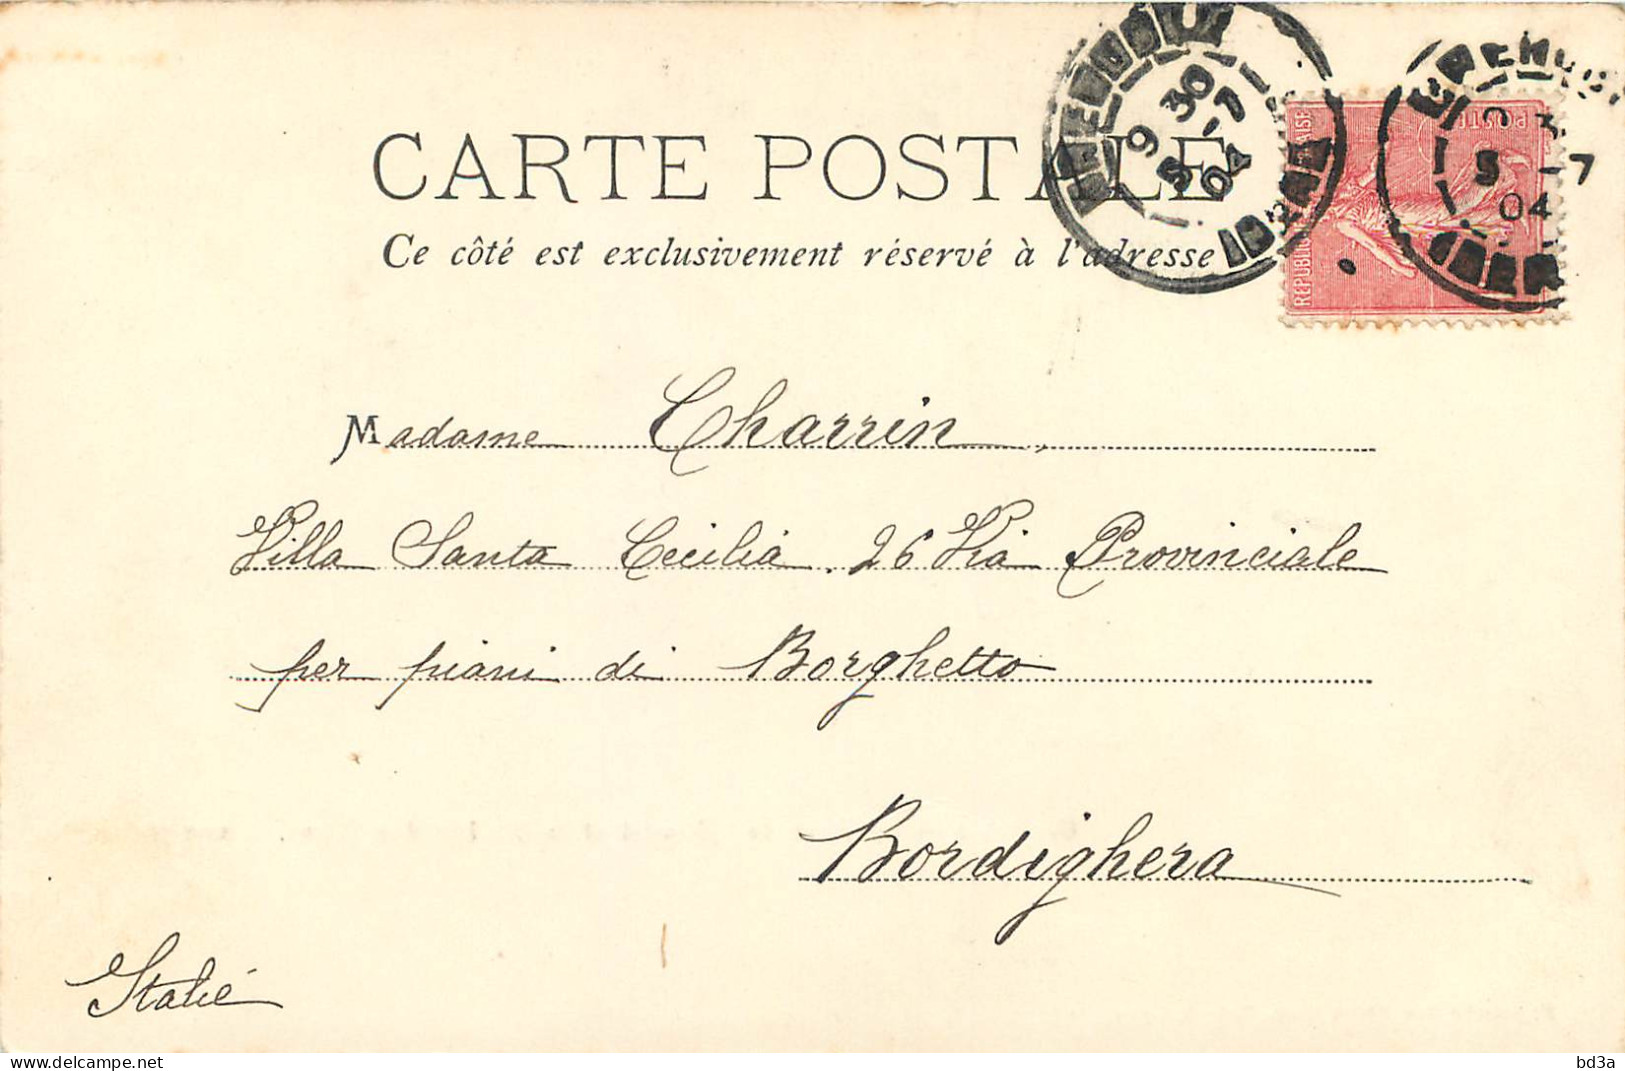 CARTE POSTALE
Ce côté est exclusivement réservé à l'adresse
9 30
5 -7
04
5 -7
04
REPUBLIQUE FRANÇAISE
POSTES
ISERE
Madame Charrin
Villa Santa Cecilia. 26 Via Provinciale
per piani di Borghetto
Bordighera
Italie
bd3a